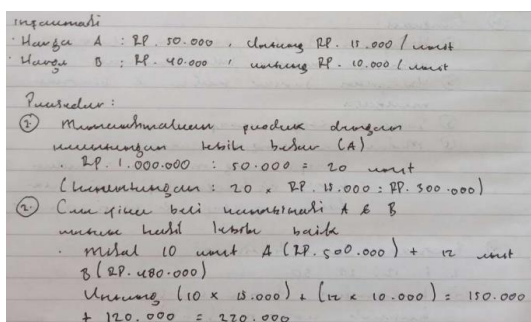 informasi
· Harga A : RP. 50.000 , Untung RP. 15.000 / unit
· Harga B : RP. 40.000 , untung RP. 10.000 / unit
Prosedur :
① Memaksimalkan produk dengan
keuntungan lebih besar (A)
· RP. 1.000.000 : 50.000 = 20 unit
(keuntungan : 20 × RP. 15.000 : RP. 300.000)
② Cek jika beli kombinasi A & B
untuk hasil lebih baik
· misal 10 unit A (RP. 500.000) + 12 unit
B (RP. 480.000)
Untung (10 × 15.000) + (12 × 10.000) = 150.000
+ 120.000 = 220.000